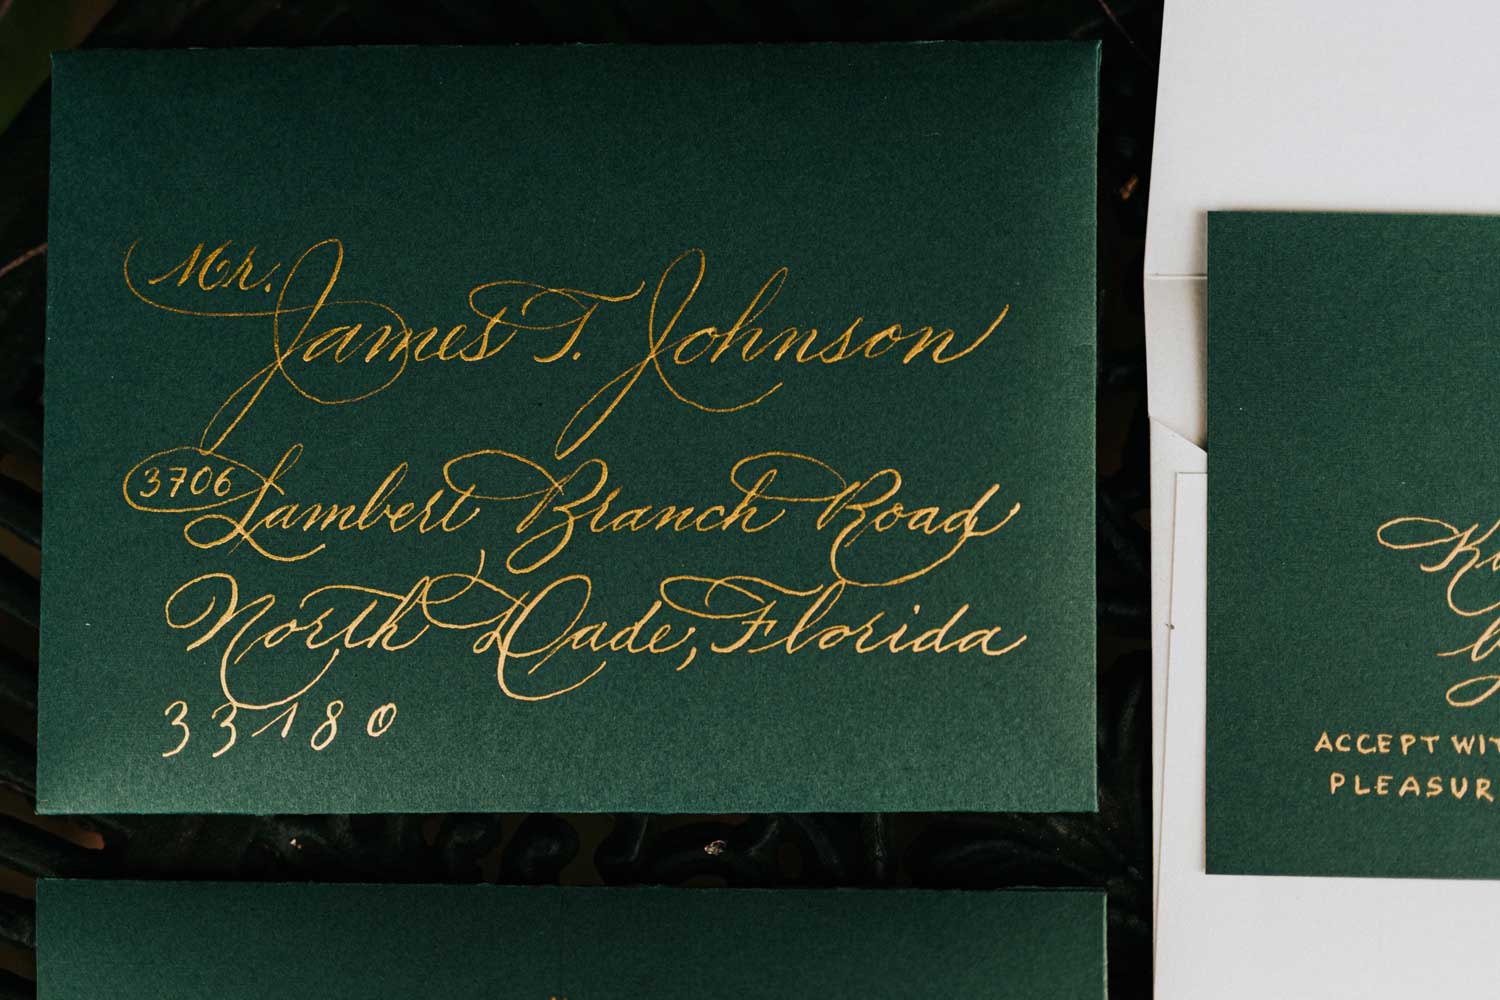 Mr.
James T. Johnson
3706 Lambert Branch Road
North Dade, Florida
33180
ACCEPT